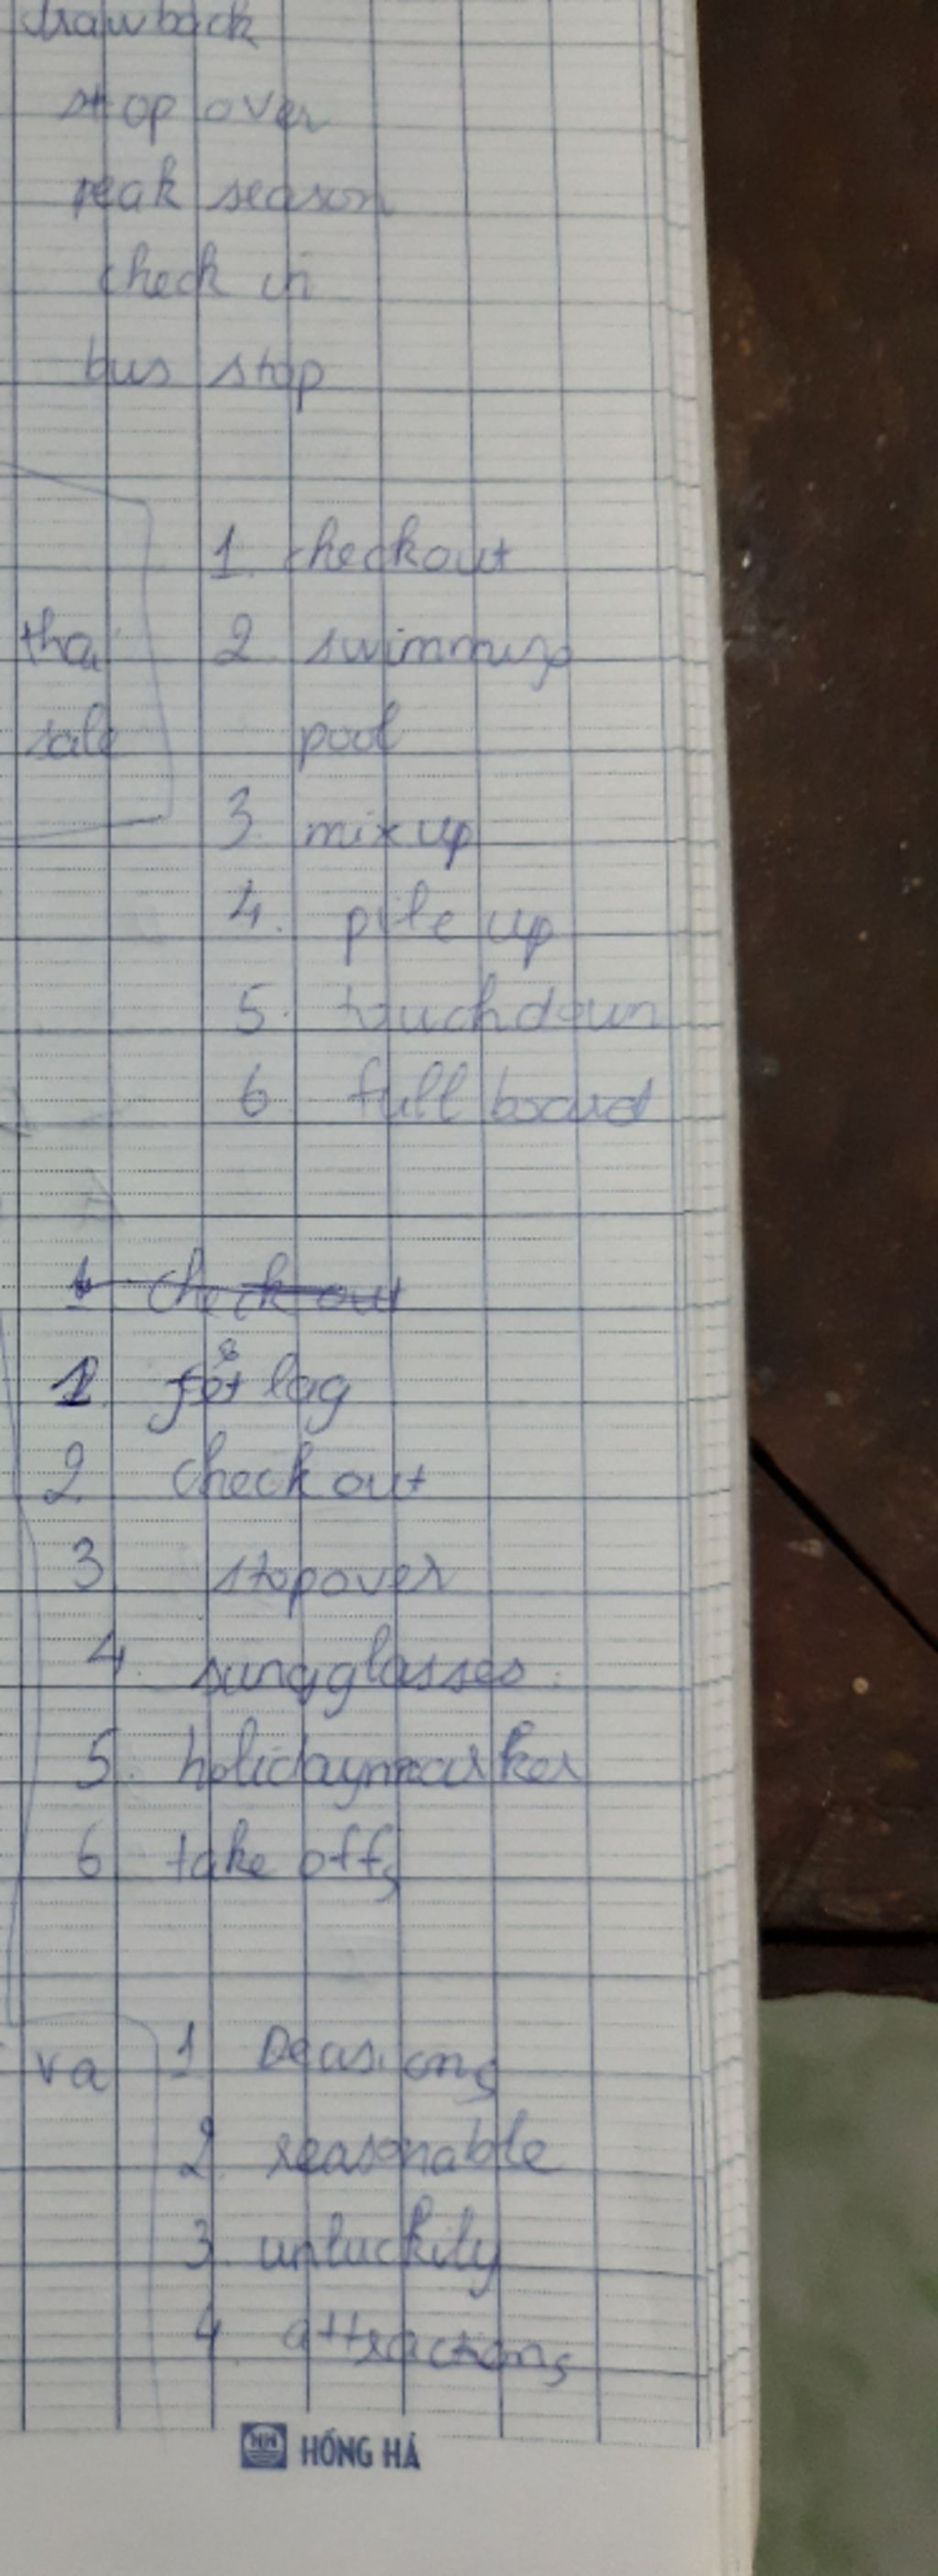 drawback
stop over
peak season
check in
bus stop
1. checkout
tha 2 swimming
sale pool
3. mix up
4. pile up
5. touchdown
6 full board
1 check out
1. jet lag
2. check out
3 stopover
4. sungglasses
5. holidaymarker
6 take off
va 1 Decisions
2. reasonable
3. unluckily
4 attractions
HH HỒNG HÀ